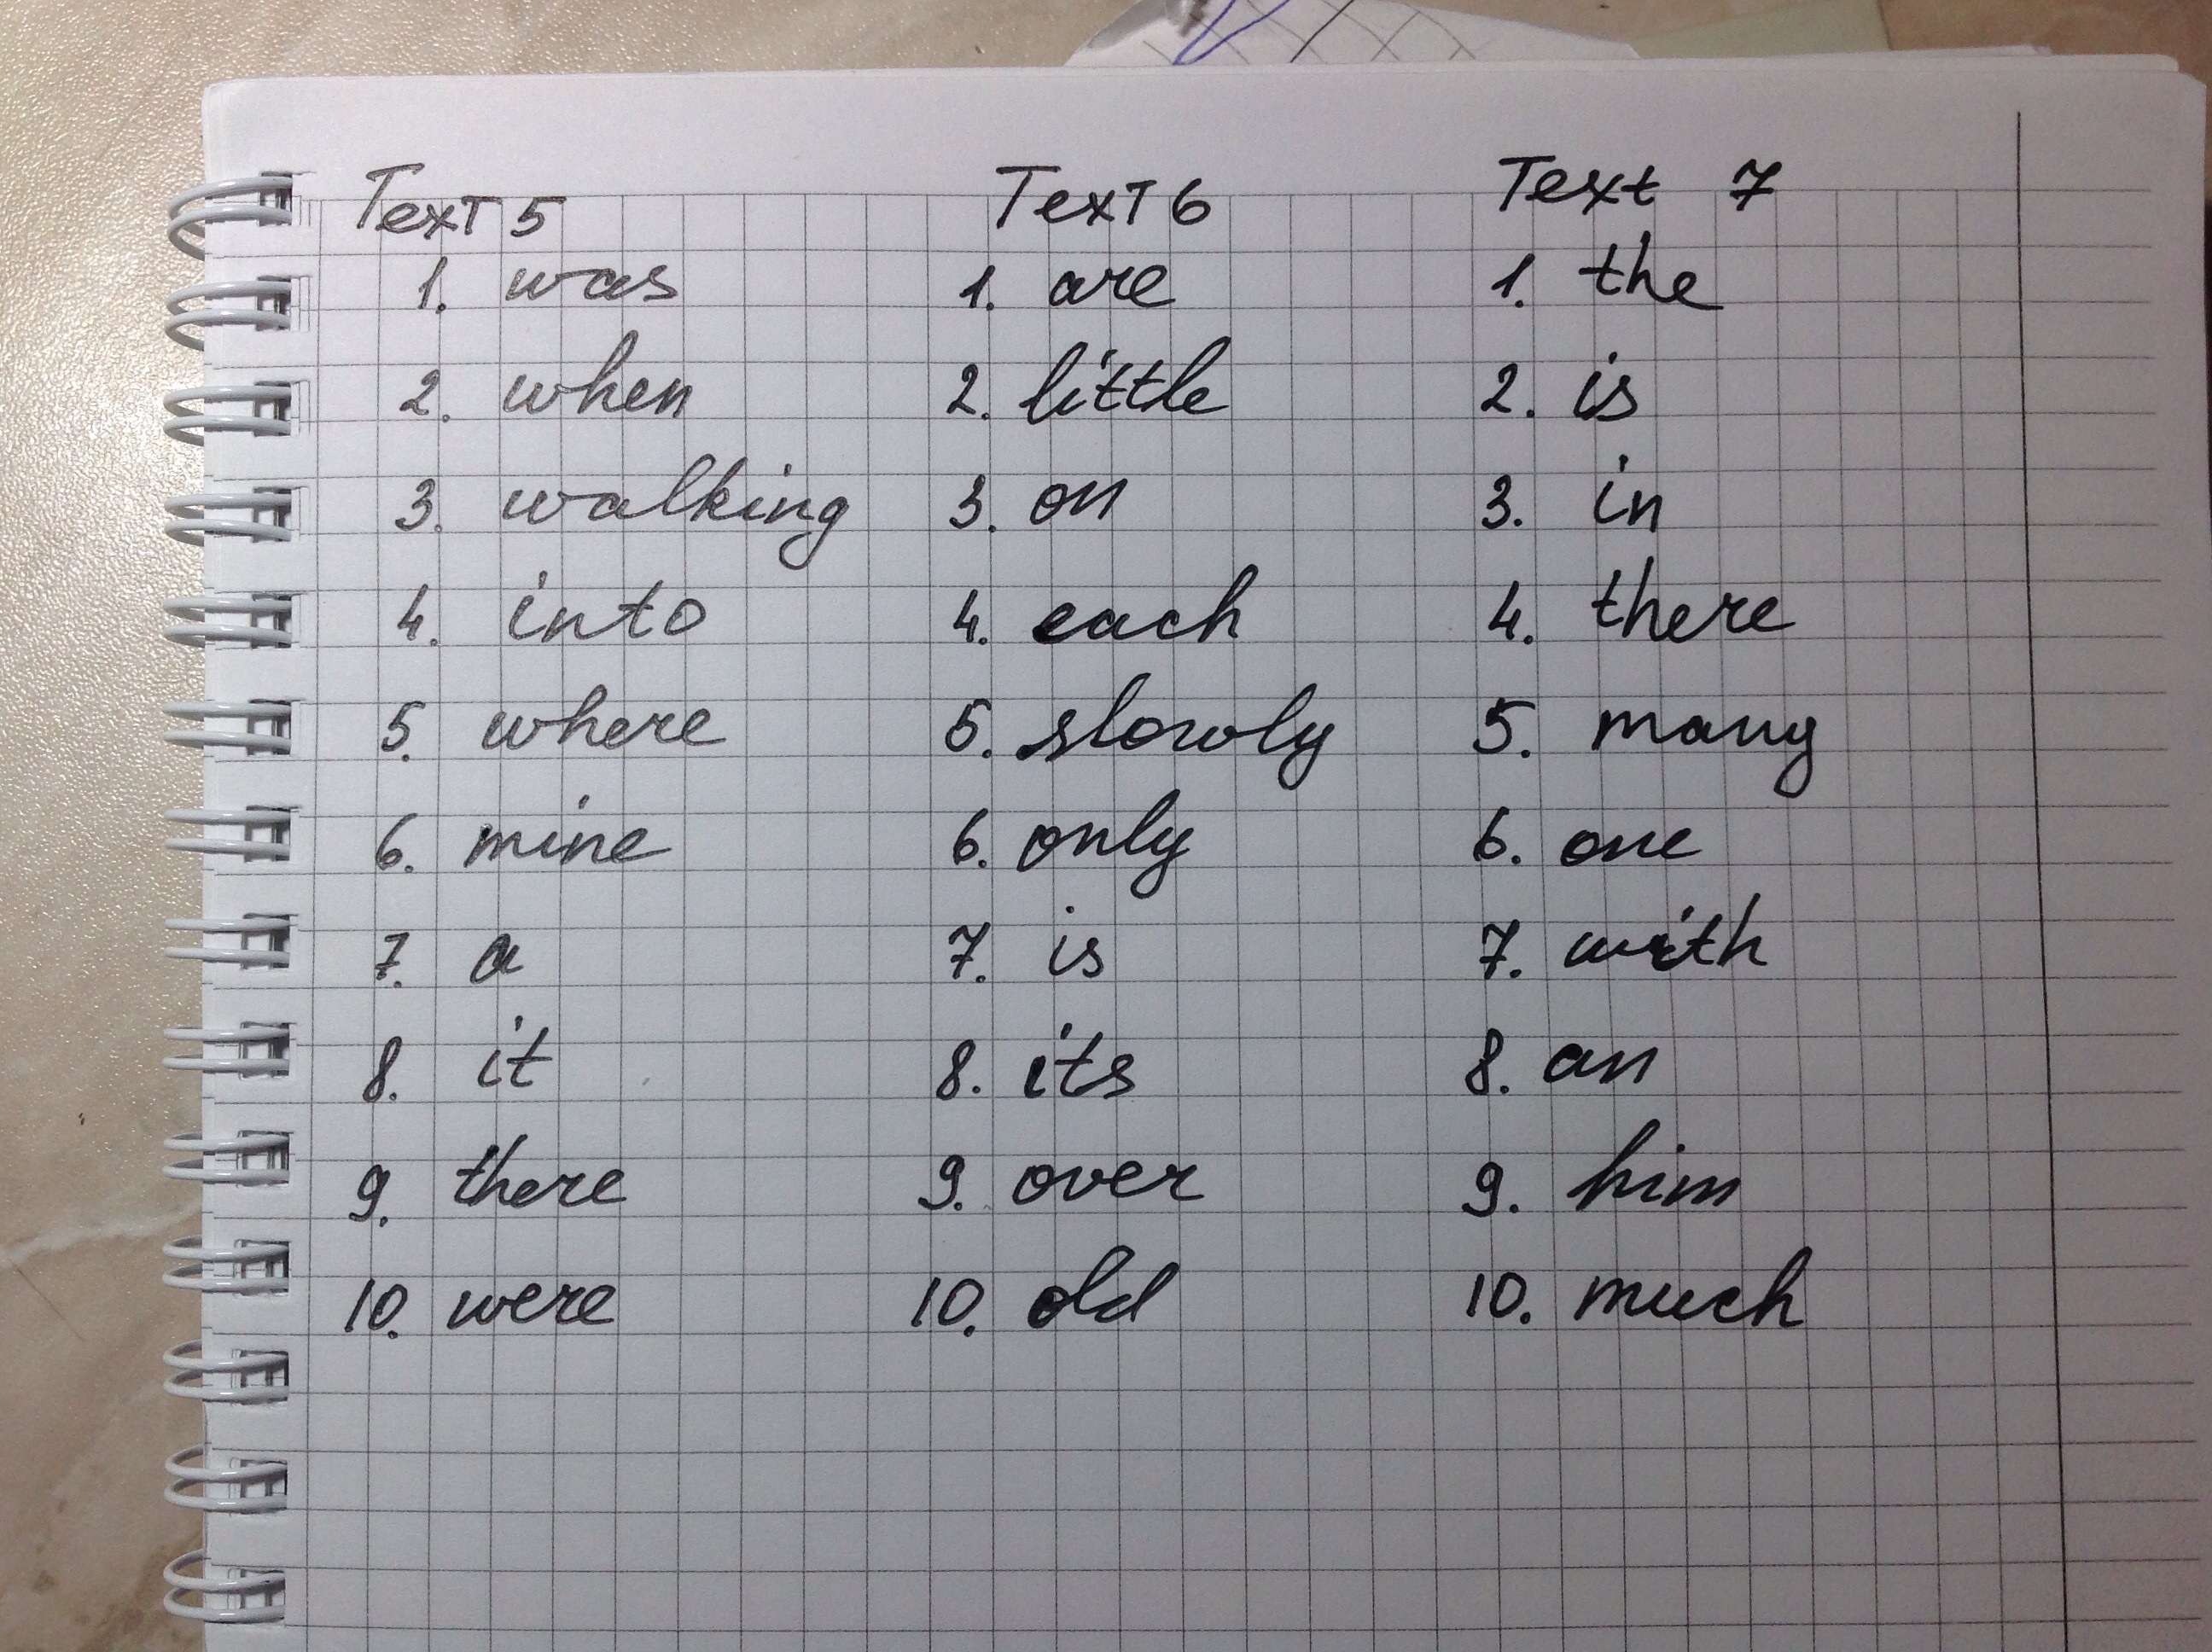 Text 5
1. was
2. when
3. walking
4. into
5. where
6. mine
7. a
8. it
9. there
10. were
Text 6
1. are
2. little
3. on
4. each
5. slowly
6. only
7. is
8. its
9. over
10. old
Text 7
1. the
2. is
3. in
4. there
5. many
6. one
7. with
8. an
9. him
10. much